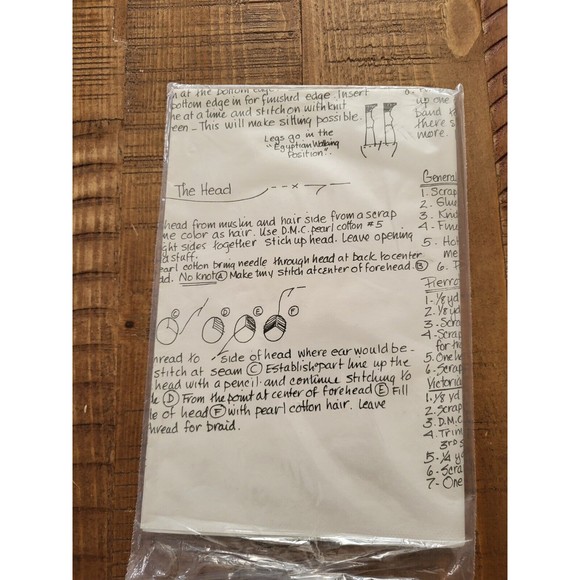 n at the bottom edge
bottom edge in for finished edge. Insert
ne at a time and stitch on with knit
een - This will make sitting possible.
Legs go in the
"Egyptian Walking
Position".
up one
band
there s
more.
The Head
head from muslin and hair side from a scrap
me color as hair. Use D.M.C. pearl cotton #5
ght sides together stich up head. Leave opening
stuff.
earl cotton bring needle through head at back to center
ad. No knot Ⓐ Make tiny stitch at center of forehead. Ⓑ
Ⓒ Ⓓ Ⓔ Ⓕ
hread to side of head where ear would be -
stitch at seam Ⓒ Establish "part line up the
head with a pencil - and continue stitching to
Ⓓ From the point at center of forehead Ⓔ Fill
le of head Ⓕ with pearl cotton hair. Leave
hread for braid.
General
1. Scrap
2. Glue
3. Kni
4. Fin
5. Hot
me
6. F
Pierro
1. 1/8 yd
2. 1/8 yd
3. Scra
4. Scrap
for th
5. One h
6. Scrap
Victoria
1. 1/8 yd
2. Scrap
3. D.M.C
4. Trim
3rd s
5. 1/4 y
6. Scra
7- One